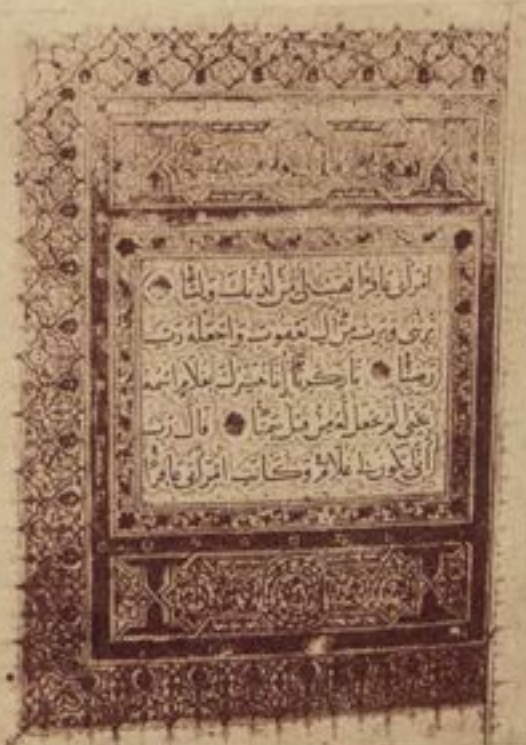 امرأتي عاقرا فهب لي من لدنك وليا
يرثني ويرث من آل يعقوب واجعله رب
رضيا يا زكريا إنا نبشرك بغلام اسمه
يحيى لم نجعل له من قبل سميا قال رب
أنى يكون لي غلام وكانت امرأتي عاقرا